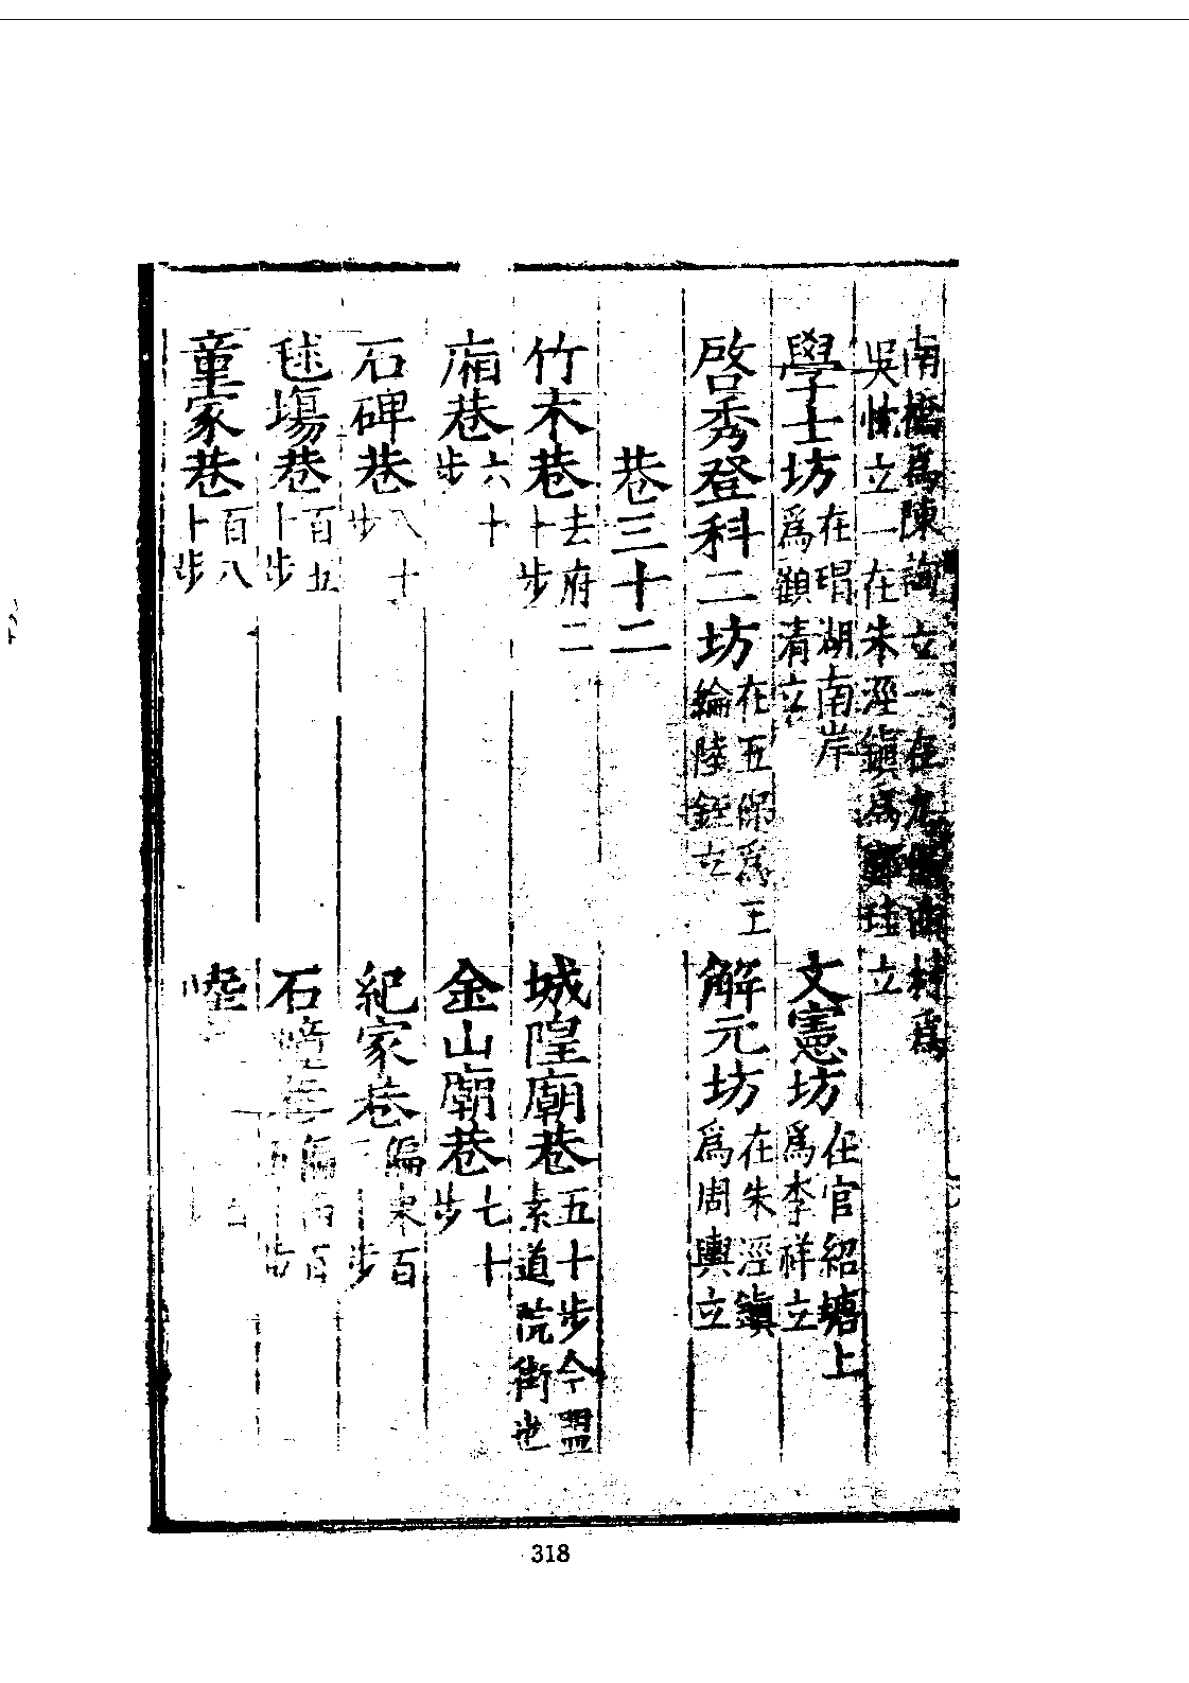 南橋爲陳詢立一在九保南村爲
吳㤝立一在朱涇鎮爲鄭珪立
學士坊在瑁湖南岸爲顧清立
文憲坊在官紹塘上爲李祥立
啓秀登科二坊在五保爲王綸陸鈳立
解元坊在朱涇鎮爲周輿立
巷三十二
竹木巷去府二十步
城隍廟巷五十步今盟素道院街也
廂巷六十步
金山廟巷七十步
石碑巷八十步
紀家巷偏東百二十步
毬場巷百五十步
石幢巷偏西百五十步
童家巷百八十步
陸
318